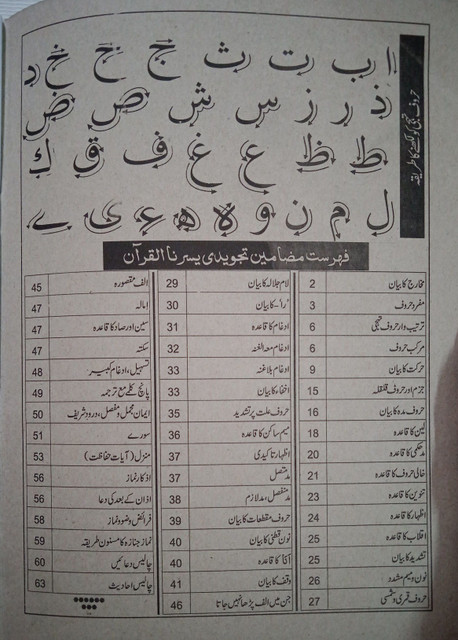 حروف تہجی کو لکھنے کا طریقہ
ا ب ت ث ج ح خ د
ذ ر ز س ش ص ض
ط ظ ع غ ف ق ك
ل م ن و ه ھ ء ی ے
فہرست مضامین تجویدی یسرنا القرآن
مخارج کا بیان 2
مفرد حروف 3
ترتیب وار حروف تہجی 6
مرکب حروف 6
حرکت کا بیان 9
جزم اور حروف قلقلہ 15
حروف مدہ کا بیان 16
لین کا قاعدہ 18
مدعکمی کا قاعدہ 20
خالی حروف کا قاعدہ 21
تنوین کا قاعدہ 23
اظہار کا قاعدہ 24
اقلاب کا قاعدہ 25
تشدید کا بیان 25
نون و میم مشدد 26
حروف قمری و شمسی 27
لام جلالہ کا بیان 29
'را' کا بیان 30
ادغام کا قاعدہ 31
ادغام مع الغنہ 32
ادغام بلا غنہ 33
اخفاء کا بیان 33
حروف علت پر تشدید 35
میم ساکن کا قاعدہ 36
اظہار تاکیدی 37
مد متصل 37
مد منفصل، مد لازم 38
حروف مقطعات کا بیان 39
نون قطنی کا بیان 40
أنا کا قاعدہ 40
وقف کا بیان 41
جن میں الف پڑھا نہیں جاتا 46
الف مقصورہ 45
امالہ 47
سین اور صاد کا قاعدہ 47
سکتہ 47
تسہیل، ادغام کبیر 48
پانچ کلمے مع ترجمہ 49
ایمان مجمل و مفصل، درود شریف 50
سورے 51
منزل (آیات حفاظت) 53
اذکار نماز 56
اذان کے بعد کی دعا 56
فرائض وضو و نماز 58
نماز جنازہ کا مسنون طریقہ 59
چالیس دعائیں 60
چالیس احادیث 63